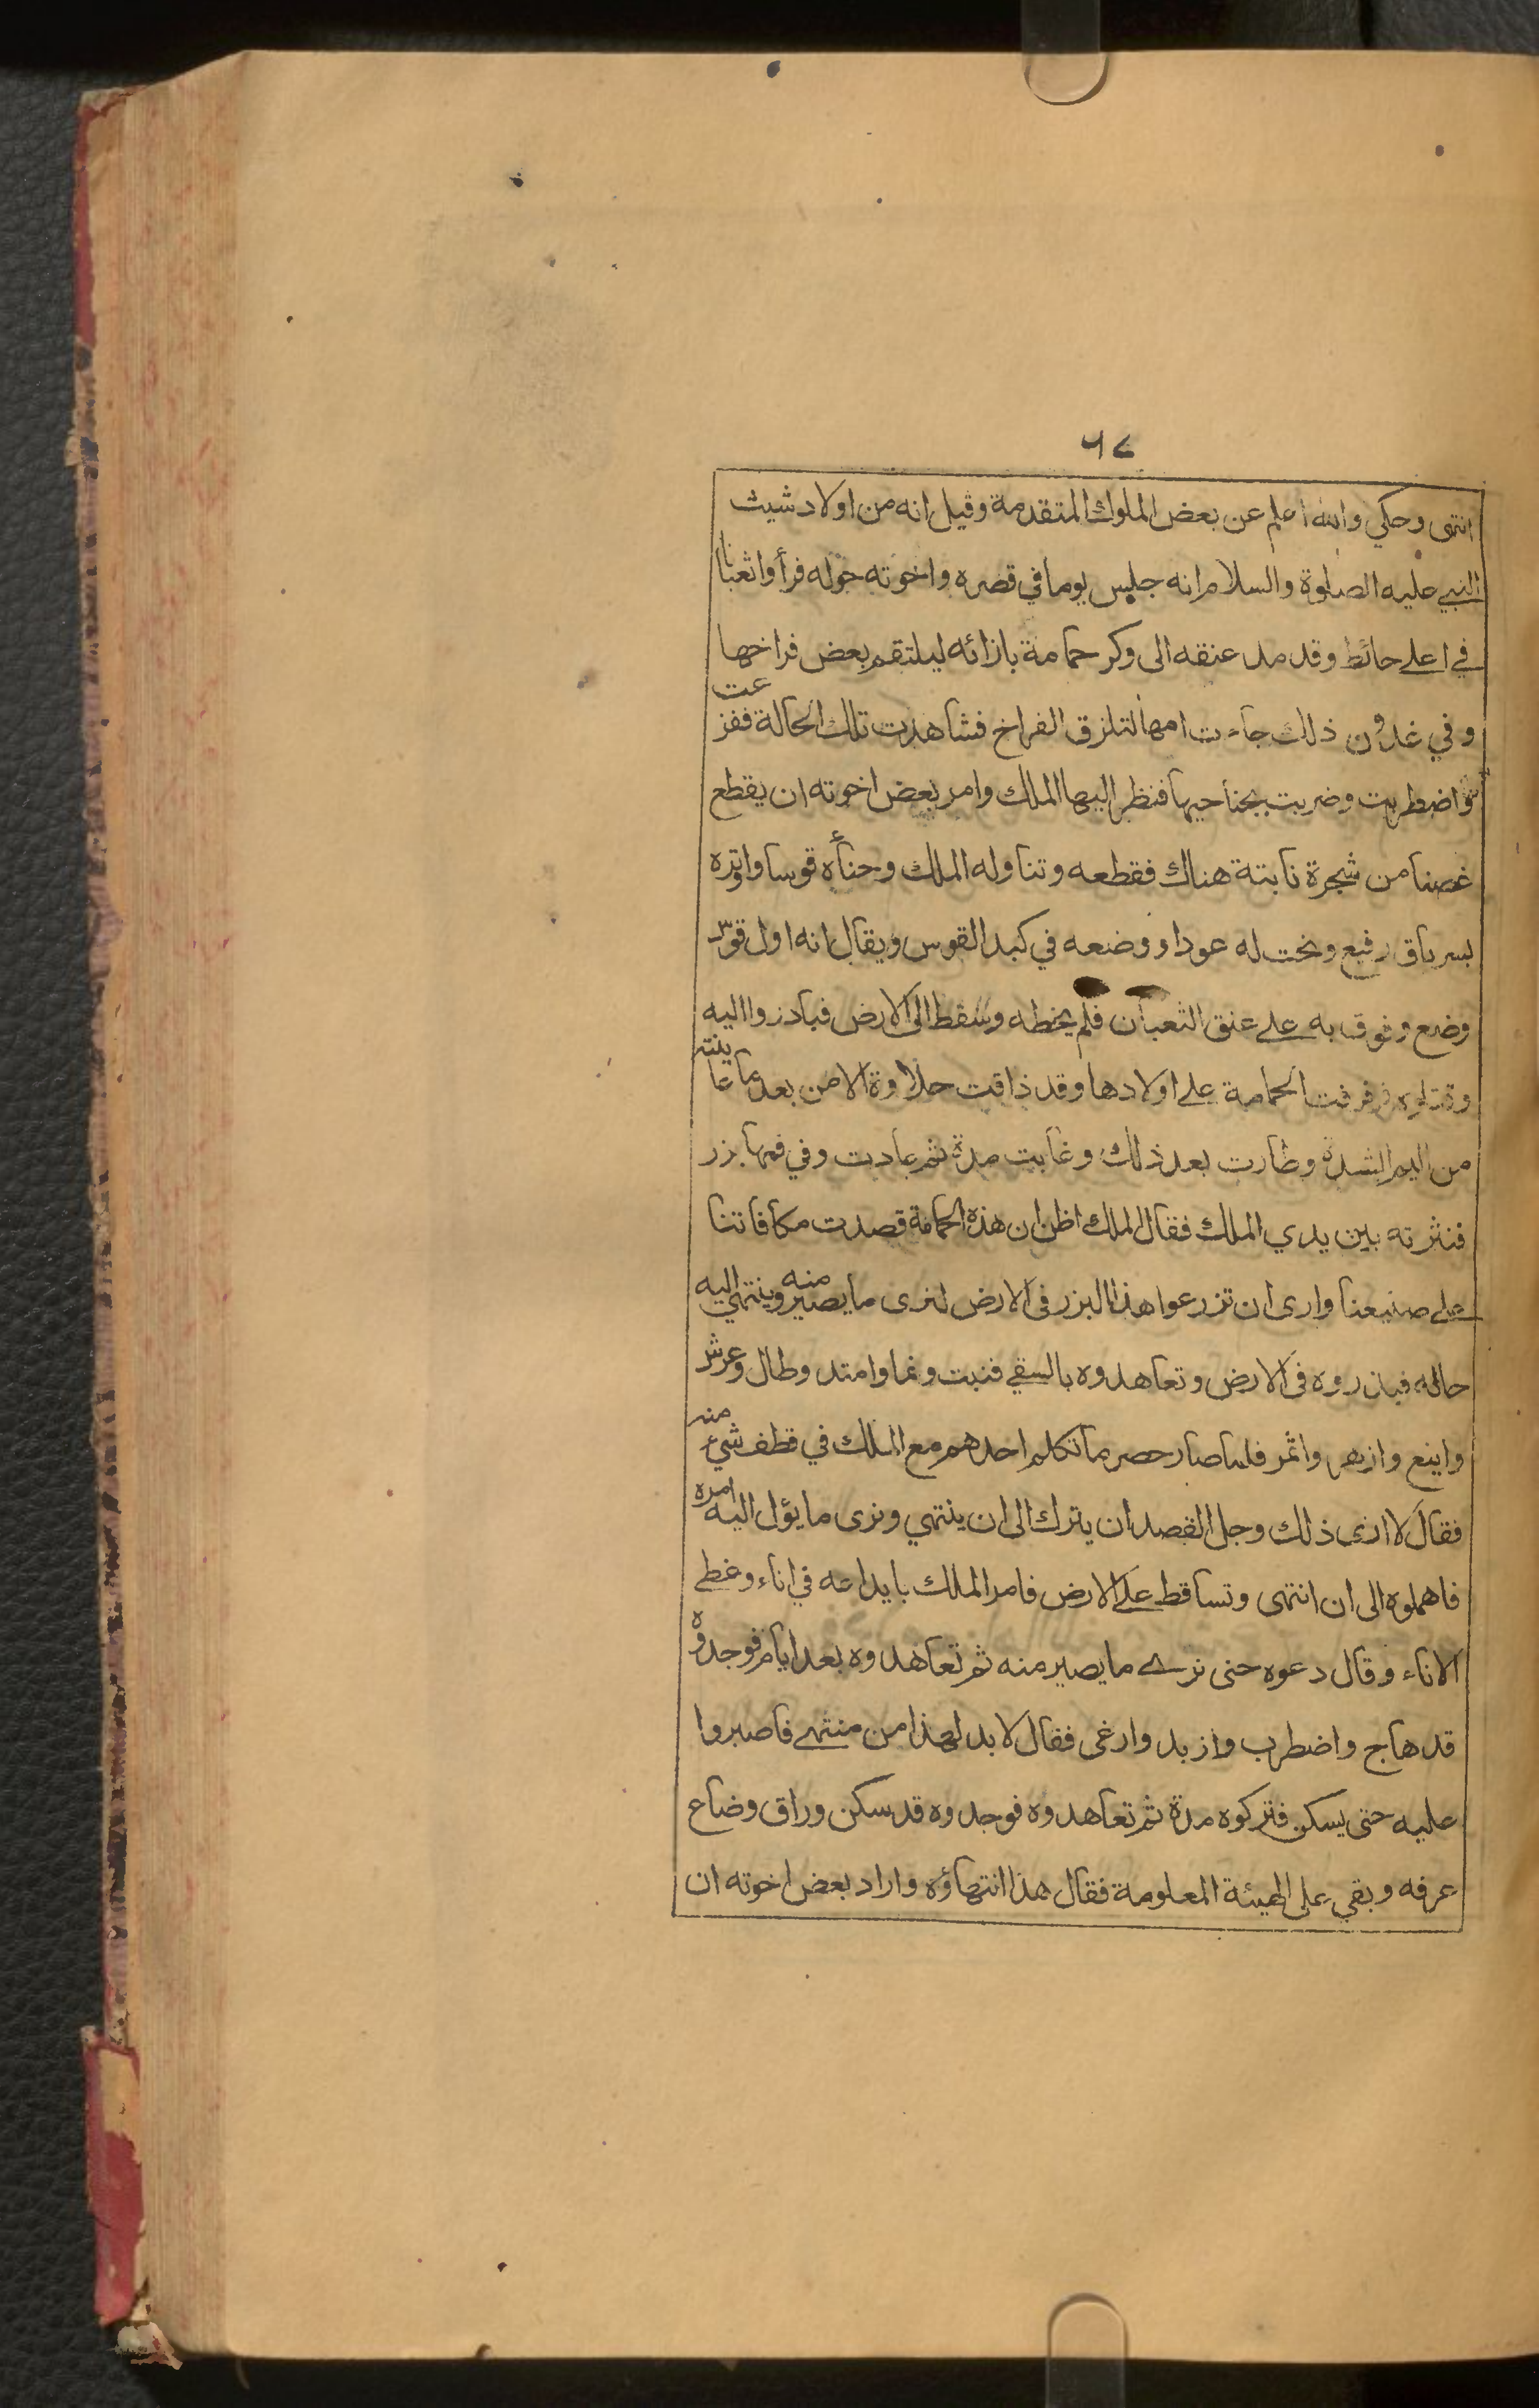 ٦٧
انتهى وحكي والله اعلم عن بعض الملوك المتقدمة وقيل انه من اولاد شيث
النبي عليه الصلوة والسلام انه جلس يوما في قصره واخوته حوله فرأوا ثعبانا
في اعلى حائط وقد مد عنقه الى وكر حمامة بازائه ليلتقم بعض فراخها
وفي غدون ذلك جاءت امها لتلزق الفراخ فشاهدت تلك الحالة ففزعت
واضطربت وضربت بجناحيها فنظر اليها الملك وامر بعض اخوته ان يقطع
غصنا من شجرة نابتة هناك فقطعه وتناوله الملك وحناه قوسا واوتره
بسرياق رفيع ونحت له عودا ووضعه في كبد القوس ويقال انه اول قوس
وضع وفوق به على عنق الثعبان فلم يخطه وسقط الى الارض فبادروا اليه
وقتلوه فرفرفت الحمامة على اولادها وقد ذاقت حلاوة الامن بعد ما عاينته
من اليم الشدة وطارت بعد ذلك وغابت مدة ثم عادت وفي فمها بزر
فنثرته بين يدي الملك فقال الملك اظن ان هذه الحمامة قصدت مكافاتنا
على صنيعنا وارى ان تزرعوا هذا البزر في الارض لنرى ما يصير منه وينتهي اليه
حاله فبذروه في الارض وتعاهدوه بالسقي فنبت ونما وامتد وطال وعرش
واينع وازهر واثمر فلما صار حصرما تكلم احدهم مع الملك في قطف شيء منه
فقال لا ارى ذلك وجل القصد ان يترك الى ان ينتهي ونرى ما يؤل اليه امره
فاهملوه الى ان انتهى وتساقط على الارض فامر الملك بايداعه في اناء وغطي
الاناء وقال دعوه حتى نرى ما يصير منه ثم تعاهدوه بعد ايام فوجدوه
قد هاج واضطرب وازبد وارغى فقال لا بد لهذا من منتهى فاصبروا
عليه حتى يسكن فتركوه مدة ثم تعاهدوه فوجدوه قد سكن وراق وضاع
عرفه وبقي على الهيئة المعلومة فقال هذا انتهاؤه واراد بعض اخوته ان